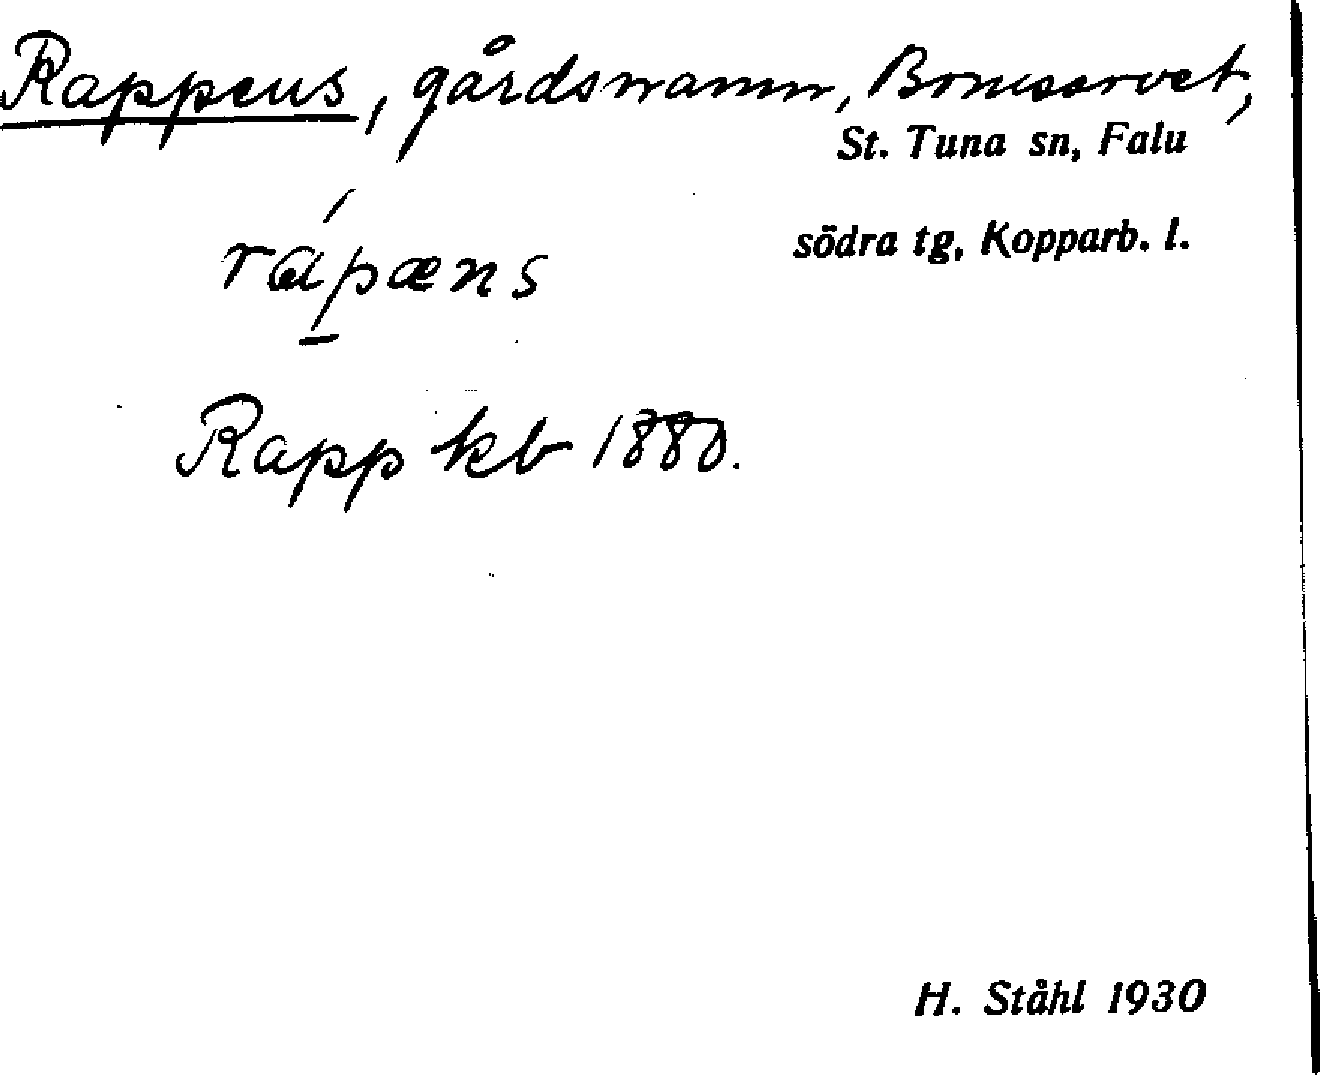 Rappens, gårdsnamn, Bomsarvet,
St. Tuna sn, Falu
södra tg, Kopparb. l.
rápæns
Rapp kb 1880.
H. Ståhl 1930